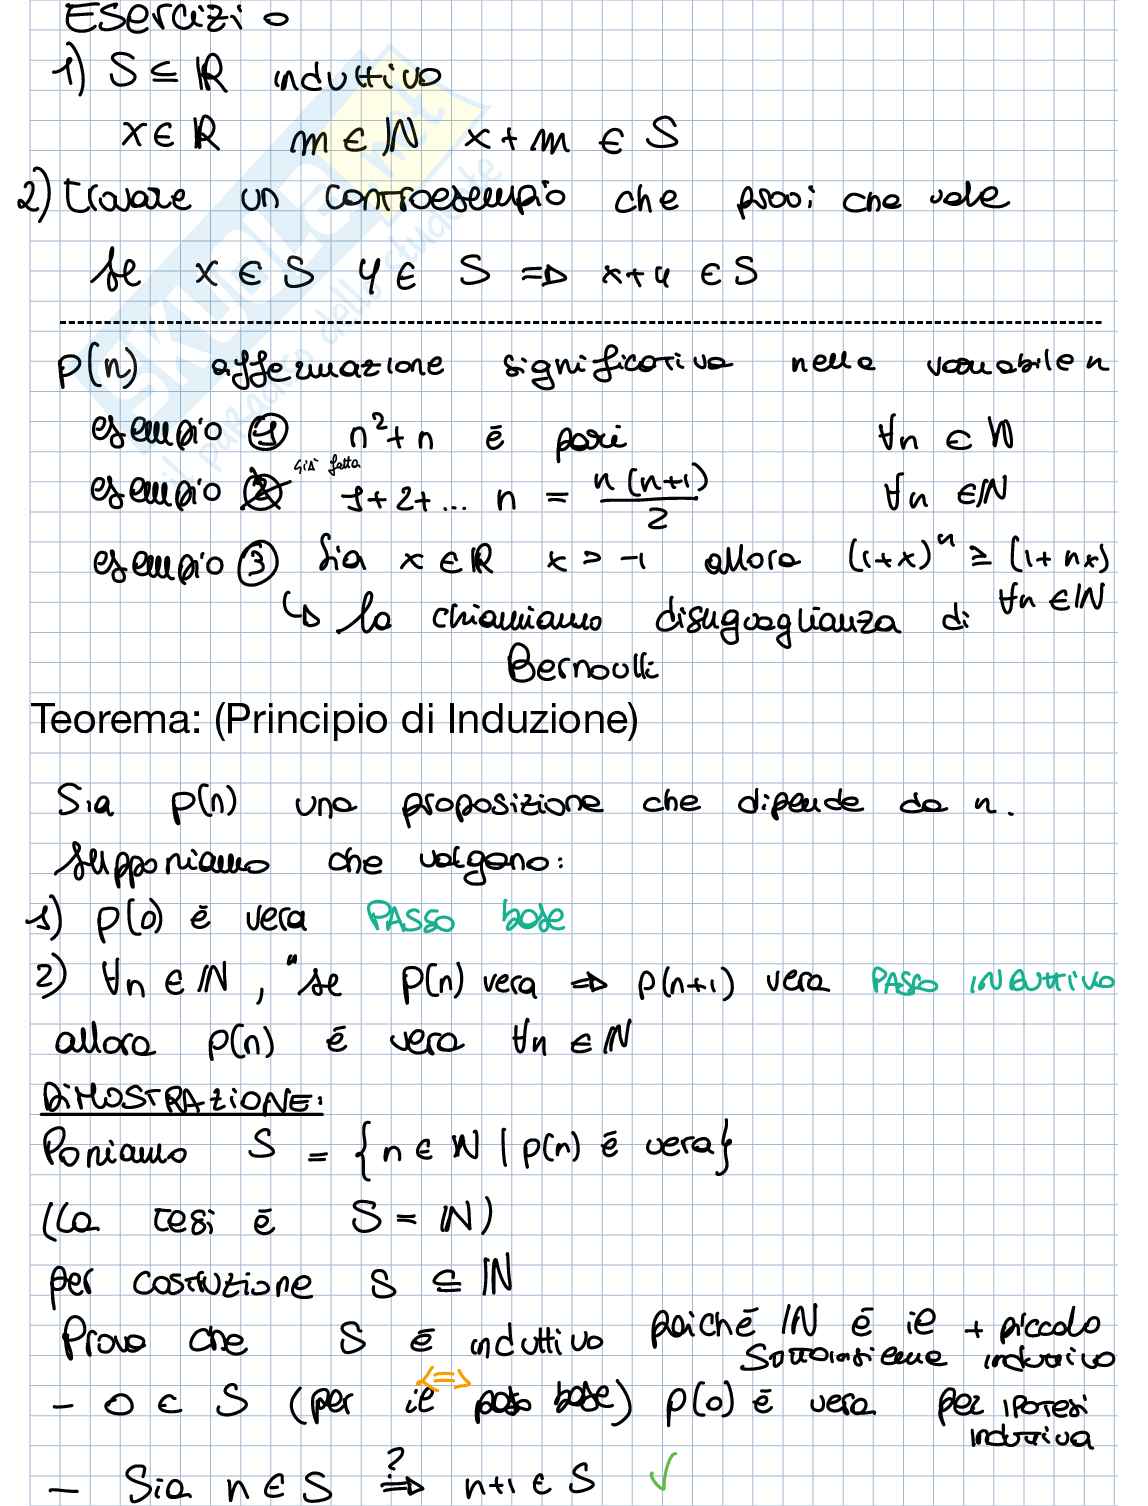 Esercizio
1) S ⊆ ℝ induttivo
x ∈ ℝ m ∈ ℕ x + m ∈ S
2) trovare un controesempio che provi che vale
se x ∈ S y ∈ S ⇒ x + y ∈ S
P(n) affermazione significativa nella variabile n
esempio ① n² + n è pari ∀n ∈ ℕ
esempio ② già fatta 1 + 2 + ... n = n(n+1)/2 ∀n ∈ ℕ
esempio ③ Sia x ∈ ℝ x > -1 allora (1+x)ⁿ ≥ (1 + nx)
∀n ∈ ℕ
↳ la chiamiamo disuguaglianza di
Bernoulli
Teorema: (Principio di Induzione)
Sia p(n) una proposizione che dipende da n.
supponiamo che valgano:
1) p(0) è vera PASSO base
2) ∀n ∈ ℕ, "se p(n) vera ⇒ p(n+1) vera PASSO INDUTTIVO
allora p(n) è vera ∀n ∈ ℕ
DIMOSTRAZIONE:
Poniamo S = {n ∈ ℕ | p(n) è vera}
(La tesi è S = ℕ)
per costruzione S ⊆ ℕ
Provo che S è induttivo poiché ℕ è il + piccolo
sottoinsieme induttivo
⇔
- 0 ∈ S (per il passo base) p(0) è vera per ipotesi
induttiva
- Sia n ∈ S ?⇒ n+1 ∈ S ✓
SKUOLA.net
il paradiso dello studente